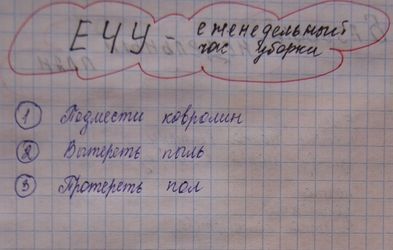 ЕЧУ еженедельный
час уборки
1 Подмести ковролин
2 Вытереть пыль
3 Протереть пол